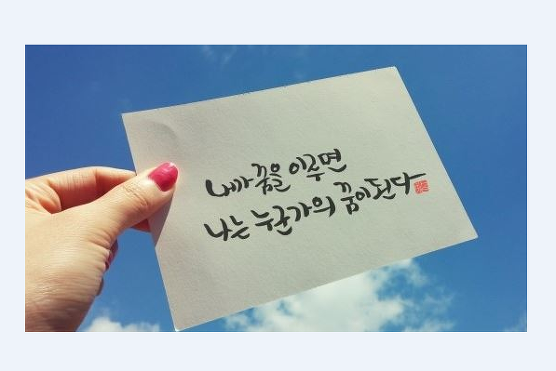 내가 꿈을 이루면
나는 누군가의 꿈이 된다